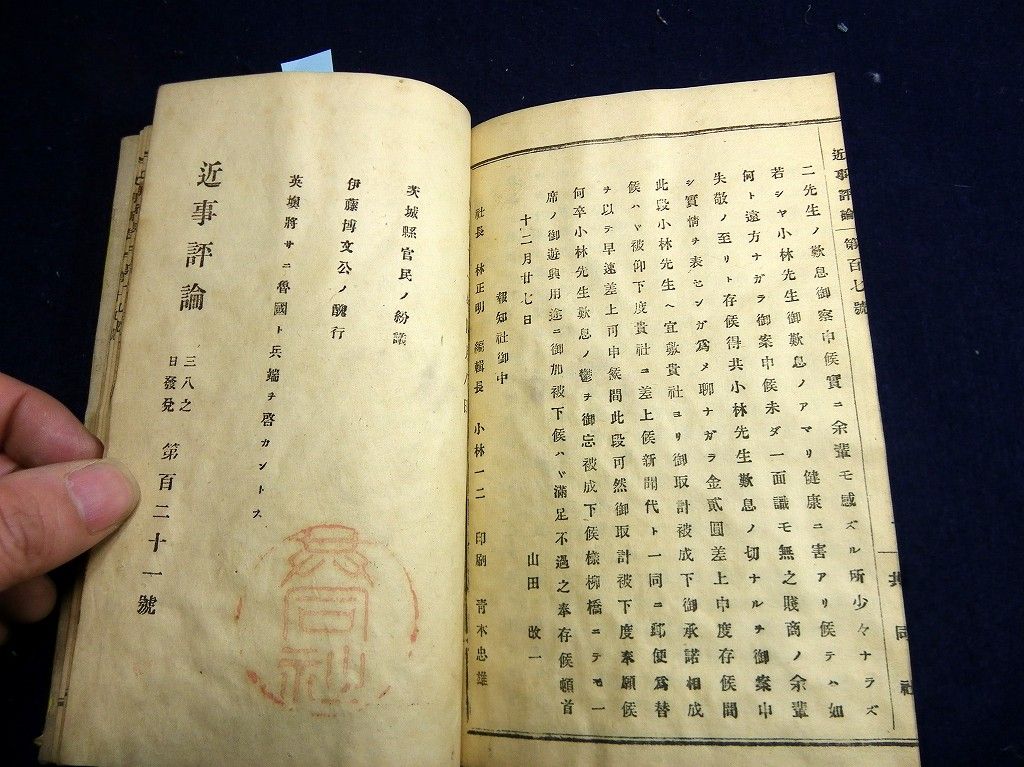 近事評論 第百七號
二先生ノ歎息御察申候實ニ余輩モ感ズル所少々ナラズ
若シヤ小林先生御歎息ノアマリ健康ニ害アリ候テハ如
何ト遠方ナガラ御案申候未ダ一面識モ無之賤商ノ余輩
失敬ノ至リト存候得共小林先生歎息ノ切ナルヲ御案申
シ實情ヲ表センガ爲メ聊ナガラ金貳圓差上申度存候間
此段小林先生ヘ宜敷貴社ヨリ御取計被成下御承諾相成
候ハヾ被仰下度貴社ニ差上候新聞代ト一同ニ郵便爲替
ヲ以テ早速差上可申候間此段可然御取計被下度奉願候
何卒小林先生歎息ノ鬱ヲ御忘被成下候樣柳橋ニテモ一
席ノ御遊興用途ニ御加被下候ハヾ滿足不過之奉存候頓首
十二月廿七日 山田 改一
報知社御中
社長 林正明 編輯長 小林一二 印刷 青木忠雄
共同社
茨城縣官民ノ紛議
伊藤博文公ノ醜行
英墺將サニ魯國ト兵端ヲ啓カントス
近事評論 三八之日發兌 第百二十一號
共同社